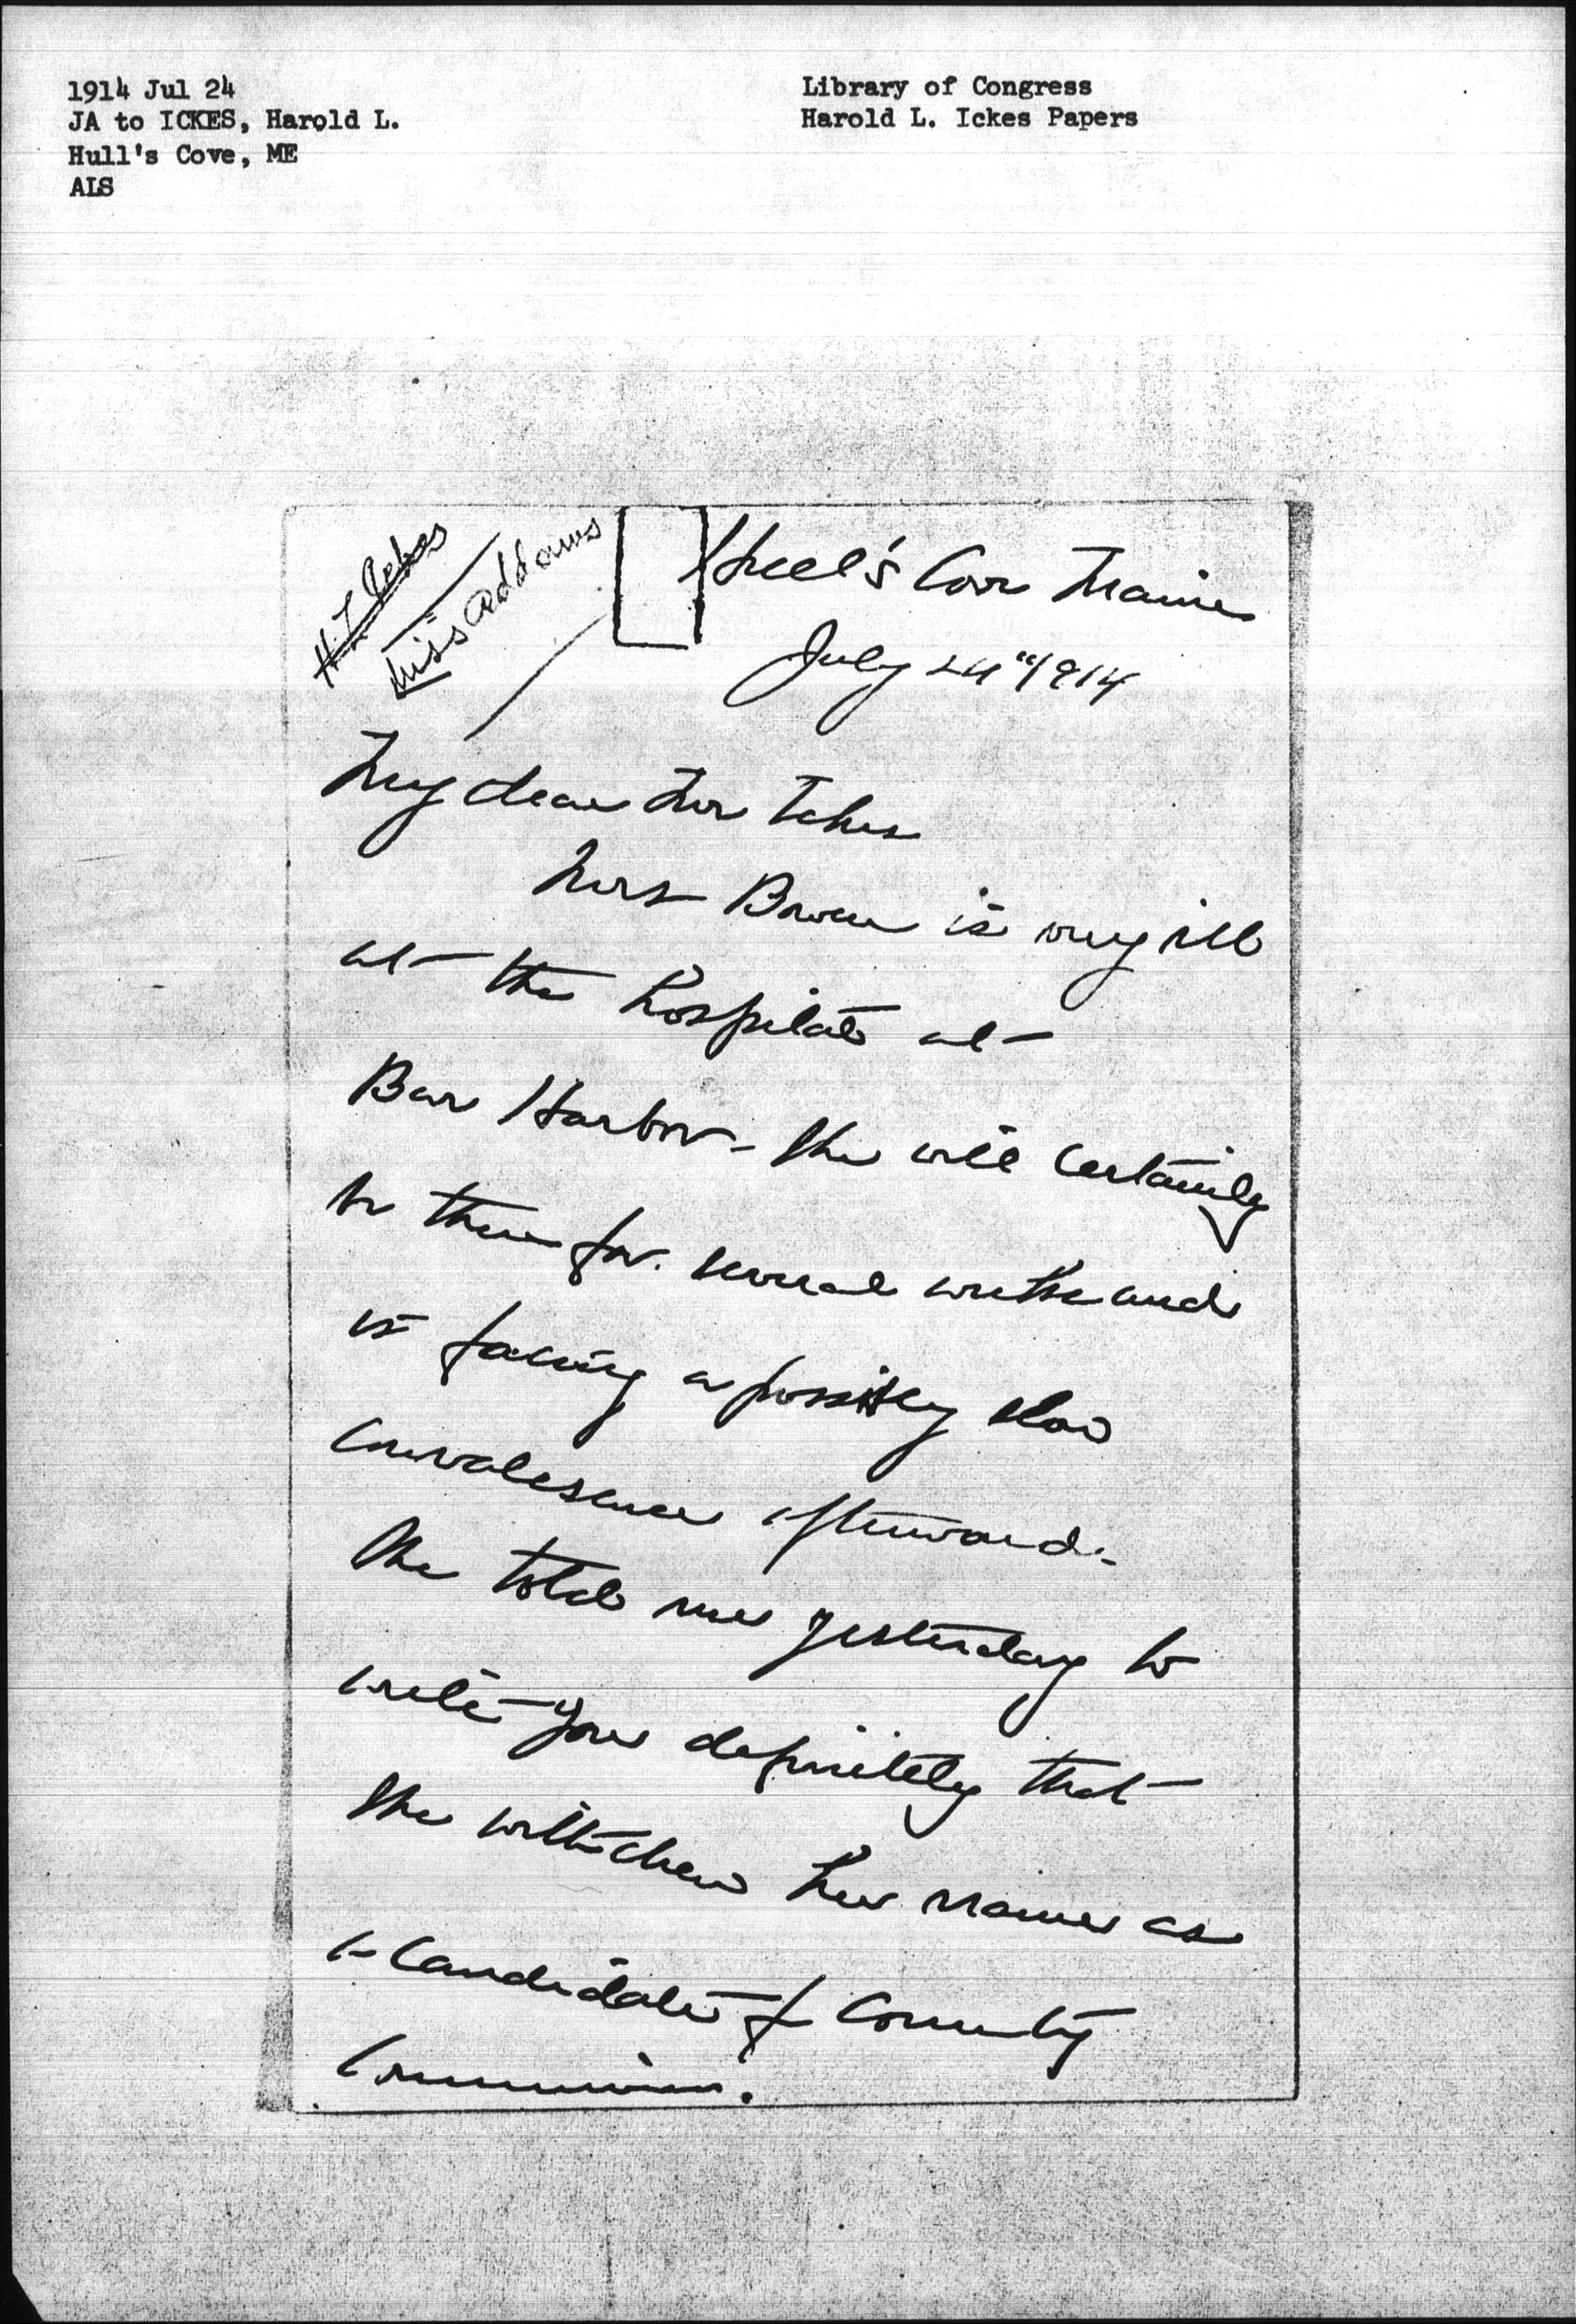 1914 Jul 24
JA to ICKES, Harold L.
Hull's Cove, ME
ALS
Library of Congress
Harold L. Ickes Papers
H. L. Ickes
Miss Addams
Hull's Cove Maine
July 24" 1914
My dear Mr Ickes
Mrs Bowen is very ill
at the hospital at
Bar Harbor - She will certainly
be there for several weeks and
is facing a possibly slow
convalescence afterward.
She told me yesterday to
write you definitely that
she withdrew her name as
a candidate of County